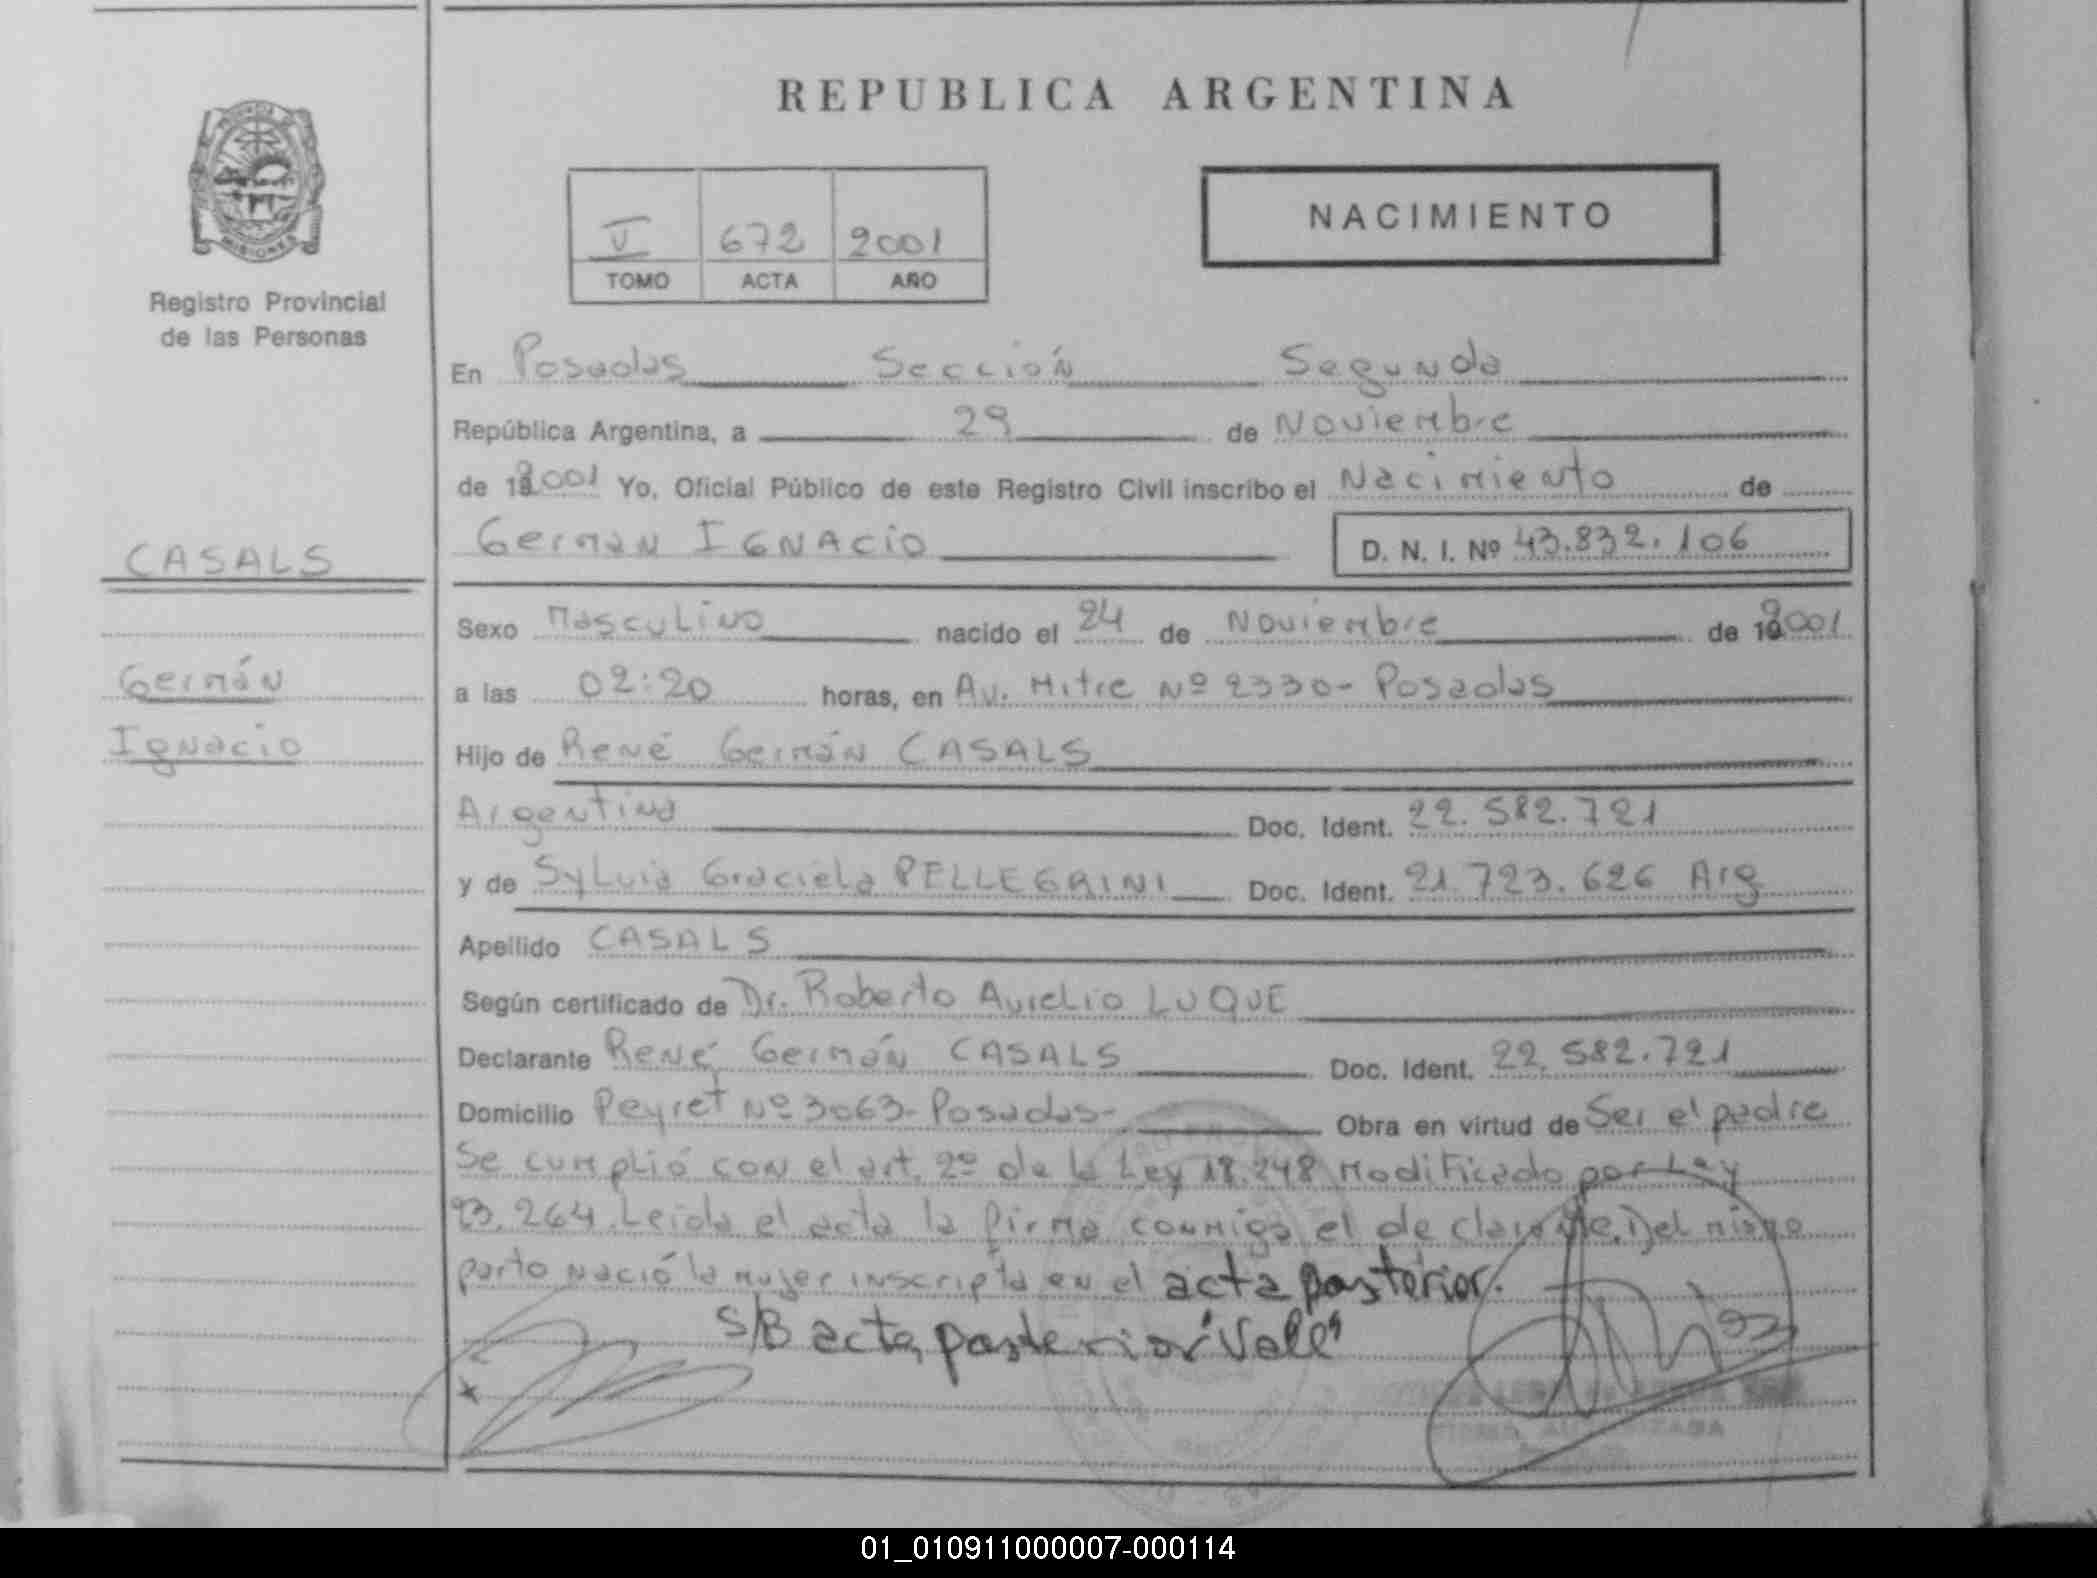 REPUBLICA ARGENTINA
PROVINCIA DE
MISIONES
Registro Provincial
de las Personas
NACIMIENTO
V 672 2001
TOMO ACTA AÑO
En Posadas Sección Segunda
República Argentina, a 29 de Noviembre
de 2001 Yo, Oficial Público de este Registro Civil inscribo el Nacimiento de
Germán IGNACIO D. N. I. Nº 43.832.106
CASALS
Germán
Ignacio
Sexo Masculino nacido el 24 de Noviembre de 2001
a las 02:20 horas, en Av. Mitre Nº 2330- Posadas
Hijo de René Germán CASALS
Argentino Doc. Ident. 22.582.721
y de Sylvia Graciela PELLEGRINI Doc. Ident. 21.723.626 Arg
Apellido CASALS
Según certificado de Dr. Roberto Aurelio LUQUE
Declarante René Germán CASALS Doc. Ident. 22.582.721
Domicilio Peyret Nº 3063- Posadas- Obra en virtud de Ser el padre
Se cumplió con el art. 2º de la Ley 18.248 Modificado por Ley
23.264. Leida el acta la firma conmigo el declarante. Del mismo
parto nació la mujer inscripta en el acta posterior.
S/B acta posterior "Vale"
01_010911000007-000114